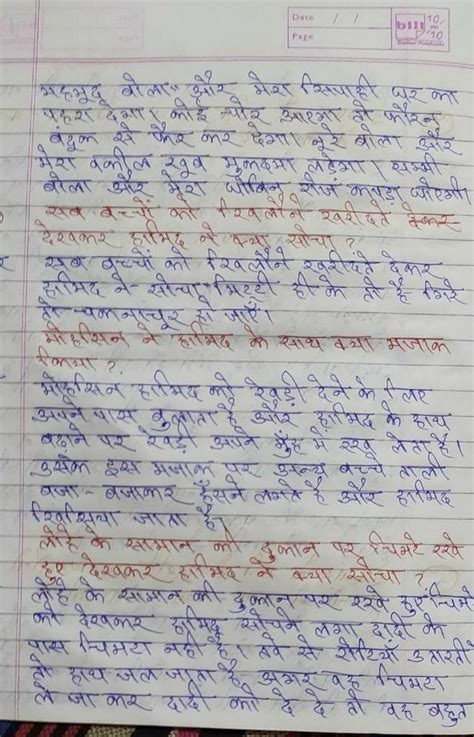 Date / /
Page
bilt 10 on 10
महमूद बोला और मेरा सिपाही घर का
पहरा देगा। कोई चोर आएगा तो फौरन
बंदूक से फैर कर देगा। नूरे बोला और
मेरा वकील खूब मुकदमा लड़ेगा। सम्मी
बोला और मेरी धोबिन रोज कपड़े धोएगी
सब बच्चों को खिलौने खरीदते
देखकर हामिद ने क्या सोचा?
सब बच्चों को खिलौने खरीदते देकर
हामिद ने सोचा मिट्टी ही के तो है गिरे
तो चकनाचूर हो जाएँ।
मोहसिन ने हामिद के साथ क्या मजाक
किया?
मोहसिन हामिद को रेवड़ी देने के लिए
अपने पास बुलाता है और हामिद के हाथ
बढ़ाने पर रेवड़ी अपने मुँह में रख लेता है।
उसके इस मजाक पर अन्य बच्चे ताली
बजा-बजाकर हँसने लगते है और हामिद
खिसिया जाता है।
लोहे के सामान की दुकान पर चिमटे रखे
हुए देखकर हामिद ने क्या सोचा?
लोहे के सामान की दुकान पर रखे हुए चिमटे
को देखकर हामिद सोचने लगा दादी के
पास चिमटा नही है। तवे से रोटियाँ उतारती
है हाथ जल जाता है अगर वह चिमटा
ले जा कर दादी को दे दे तो वह बहुत